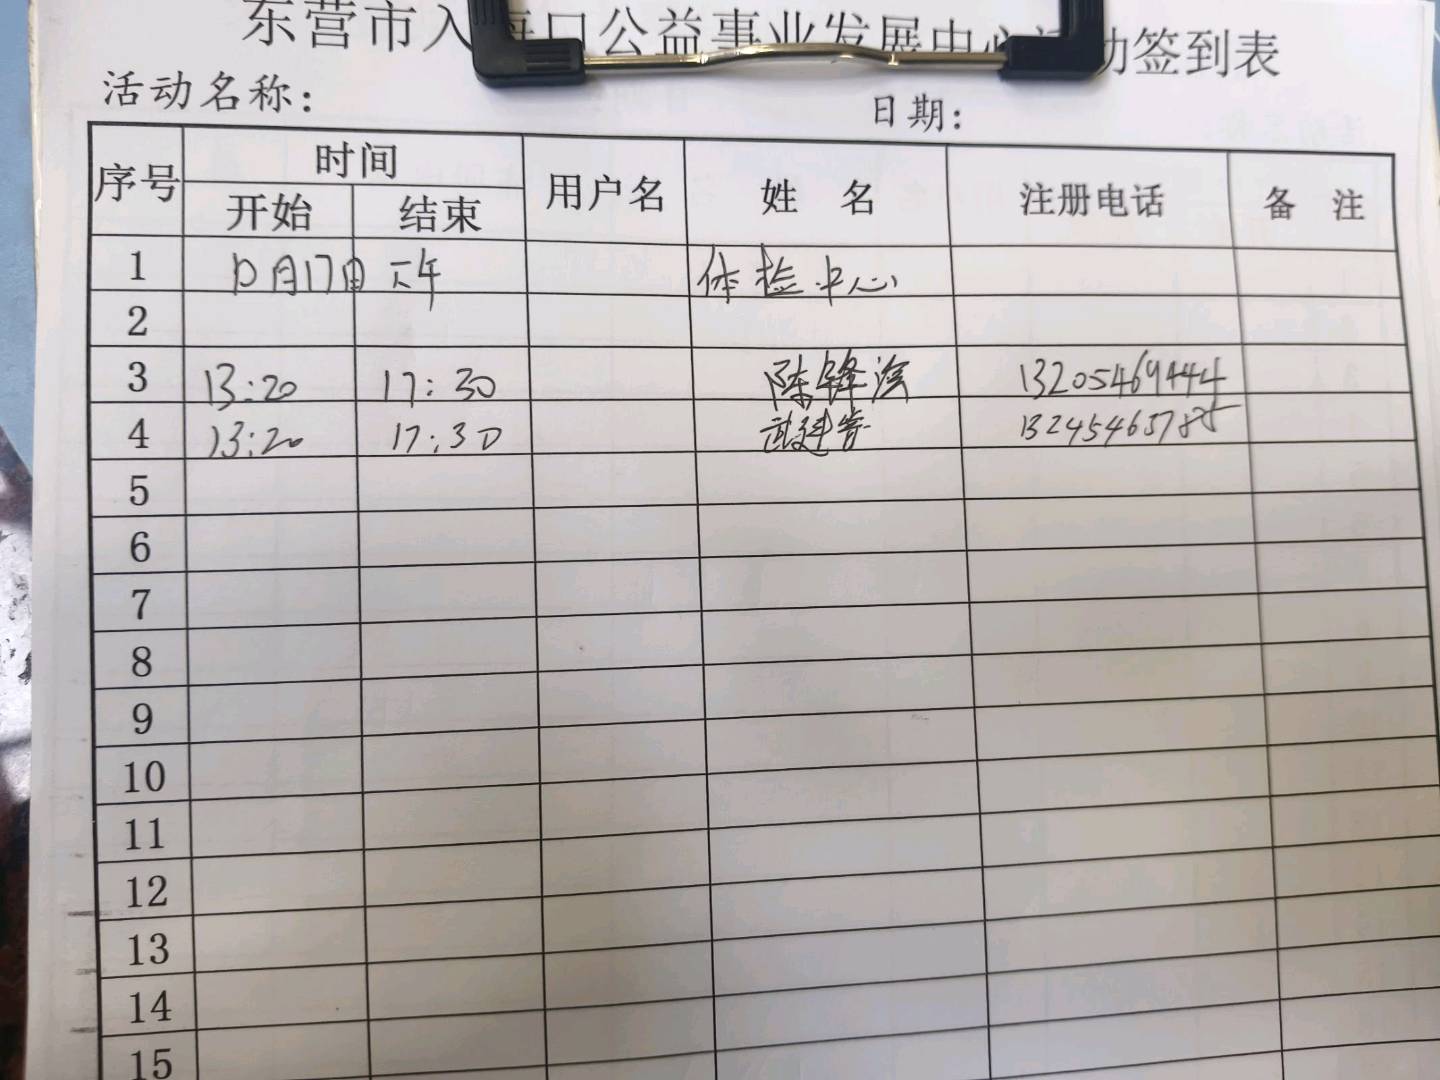 东营市入海口公益事业发展中心活动签到表
活动名称： 日期：
序号 时间 用户名 姓 名 注册电话 备 注
开始 结束
1 10月17日 下午 体检中心
2
3 13:20 17:30 陈锋滨 13205469444
4 13:20 17:30 武建 13245465785
5
6
7
8
9
10
11
12
13
14
15